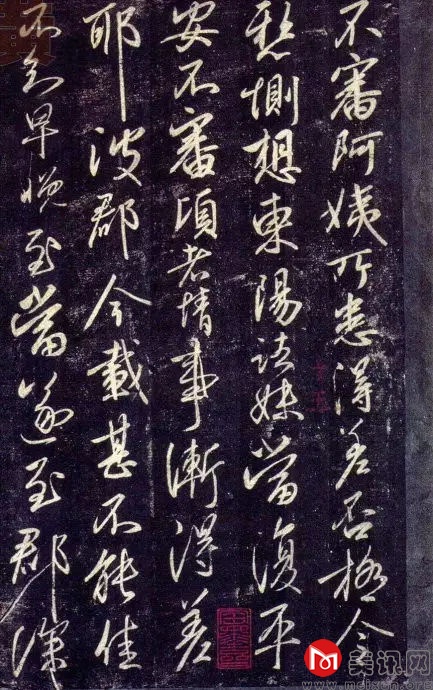 不審阿姨所患得差否極令
悬惻想東陽諸妹當復平
安不審頃者情事漸得差
耶彼郡今載甚不能佳
不知早晚至當遂至郡深
美讯网